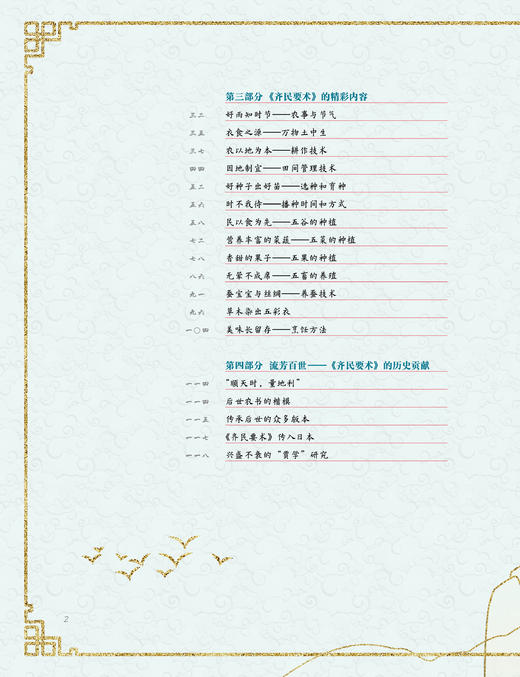 第三部分 《齐民要术》的精彩内容
三二 好雨知时节——农事与节气
三五 衣食之源——万物土中生
三七 农以地为本——耕作技术
四四 因地制宜——田间管理技术
五二 好种子出好苗——选种和育种
五六 时不我待——播种时间和方式
五八 民以食为先——五谷的种植
七二 营养丰富的菜蔬——五菜的种植
七八 香甜的果子——五果的种植
八六 无荤不成席——五畜的养殖
九一 蚕宝宝与丝绸——养蚕技术
九六 草木染出五彩衣
一〇四 美味长留存——烹饪方法
第四部分 流芳百世——《齐民要术》的历史贡献
一一四 “顺天时，量地利”
一一四 后世农书的楷模
一一五 传承后世的众多版本
一一七 《齐民要术》传入日本
一一八 兴盛不衰的“贾学”研究
2